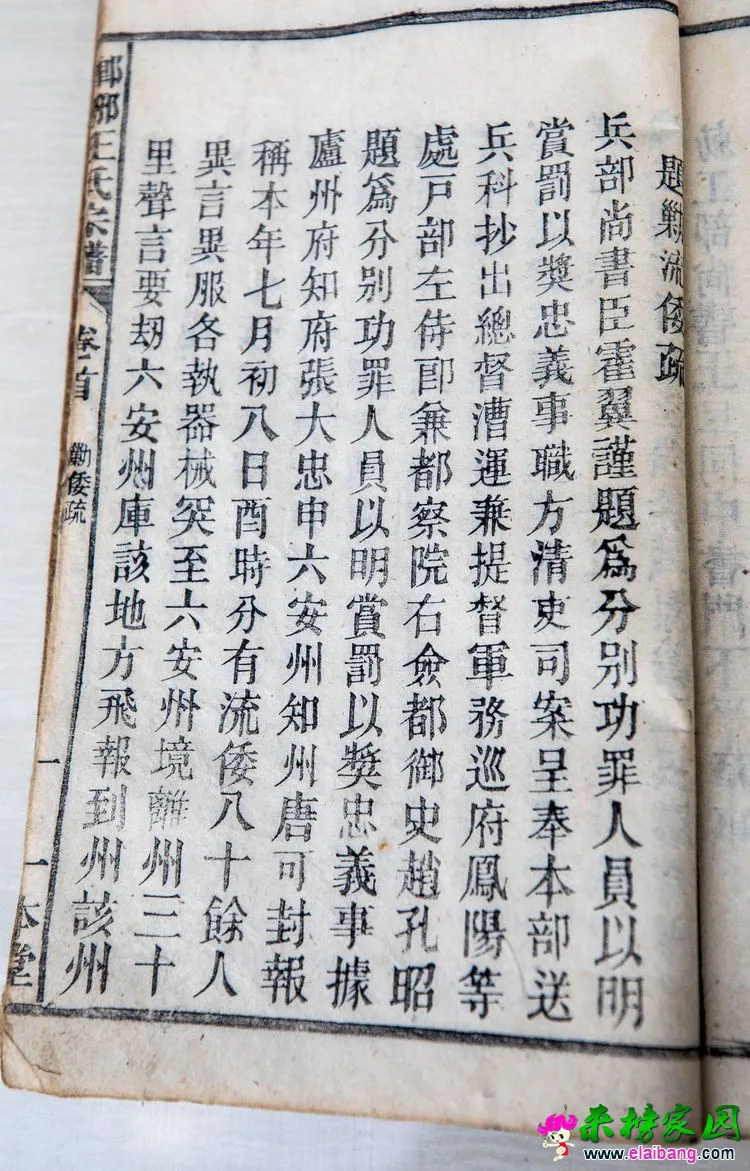 題勦流倭疏
兵部尚書臣霍翼謹題爲分别功罪人員以明
賞罰以奬忠義事職方清吏司案呈奉本部送
兵科抄出總督漕運兼提督軍務巡府鳳陽等
處戸部左侍郎兼都察院右僉都御史趙孔昭
題爲分别功罪人員以明賞罰以奬忠義事據
廬州府知府張大忠申六安州知州唐可封報
稱本年七月初八日酉時分有流倭八十餘人
異言異服各執器械突至六安州境離州三十
里聲言要刼六安州庫該地方飛報到州該州
瑯琊王氏宗譜 卷首 勦倭疏 一 一本堂
来榜家园
www.elaibang.com